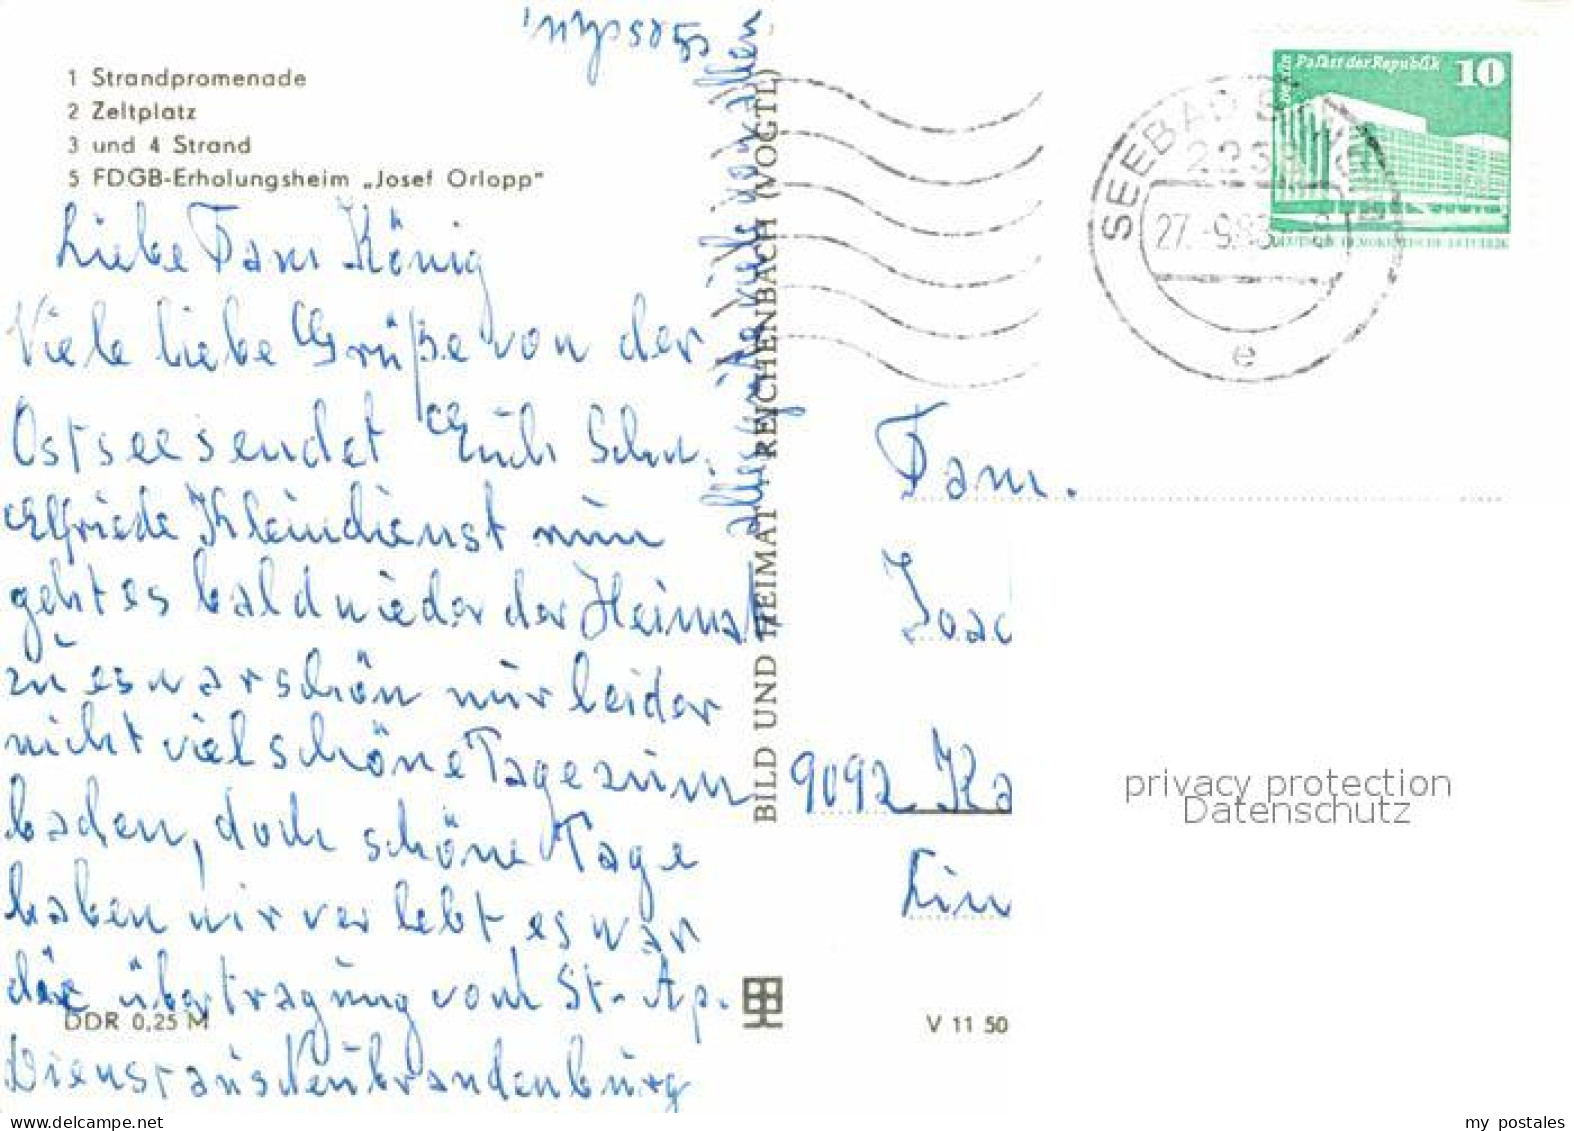 1 Strandpromenade
2 Zeltplatz
3 und 4 Strand
5 FDGB-Erholungsheim „Josef Orlopp"
Liebe Fam König
Viele liebe Grüße von der
Ostsee sendet Euch Schw.
Elfriede Kleindienst nun
geht es bald wieder der Heimat
zu es war schön nur leider
nicht viel schöne Tage zum
baden, doch schöne Tage
haben wir verlebt es war
die übertragung vom St-Ap.
Dienst aus Neubrandenburg
alles grüße euch von allen
DDR 0,25 M
BILD UND HEIMAT REICHENBACH (VOGTL)
V 11 50
Berlin Palast der Republik 10
DEUTSCHE DEMOKRATISCHE REPUBLIK
SEEBAD
27.-9.83
e
Fam.
Joac
9092 Ka
Lin
privacy protection
Datenschutz
www.delcampe.net
my postales